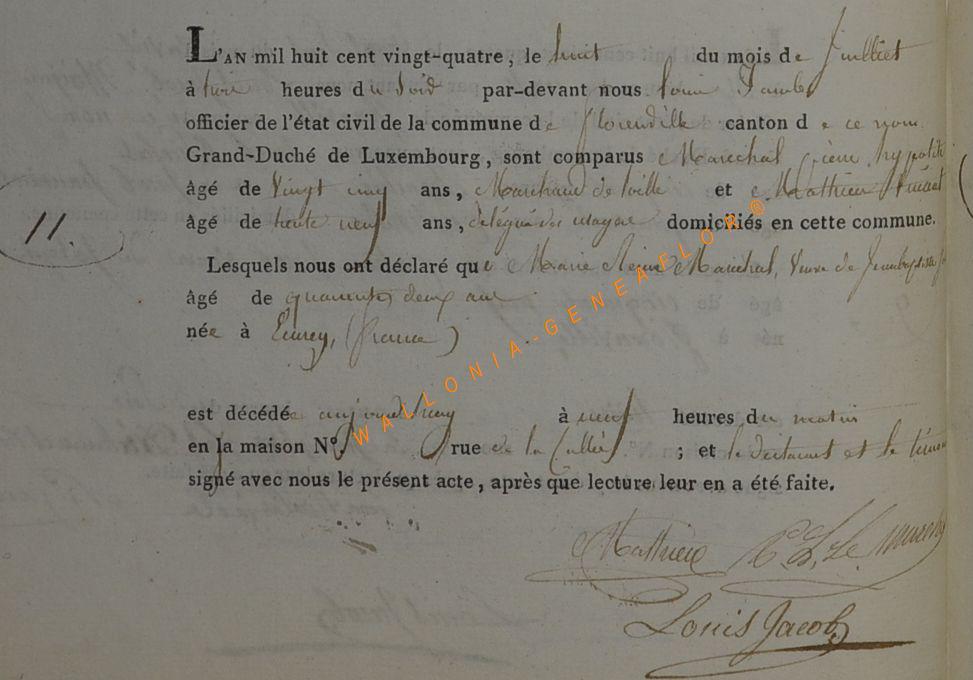 L'AN mil huit cent vingt-quatre, le huit du mois de Juilliet
à trois heures du soir par-devant nous Louis Jacob
officier de l'état civil de la commune de florenville canton de ce nom
Grand-Duché de Luxembourg, sont comparus Marechal pierre hypolite
âgé de Vingt cinq ans, Marchand de toille et Mathieu
âgé de trente neuf ans, domiciliés en cette commune.
11.
Lesquels nous ont déclaré que Marie Marechal, Veuve de Jean baptiste
âgé de quarente deux ans
née à (france)
est décédée aujourdhuy à neuf heures du matin
en la maison N° rue de la ; et le declarant et le témoin
signé avec nous le présent acte, après que lecture leur en a été faite.
Mathieu
Louis Jacob
WALLONIA-GENEAFLOR®